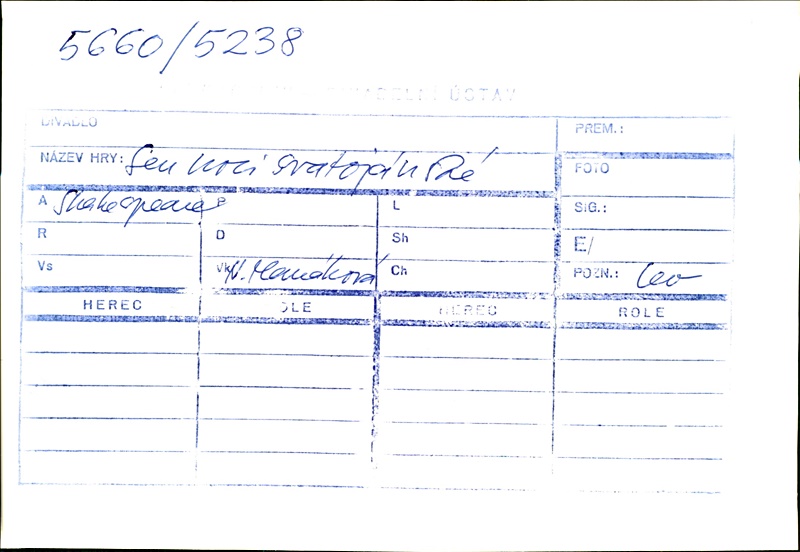 5660/5238
DIVADELNÍ ÚSTAV
DIVADLO
PREM.:
NÁZEV HRY: Sen noci svatojánské
FOTO
A Shakespeare P L SIG.:
R D Sh E/
Vs Vk Ch POZN.:
HEREC ROLE HEREC ROLE